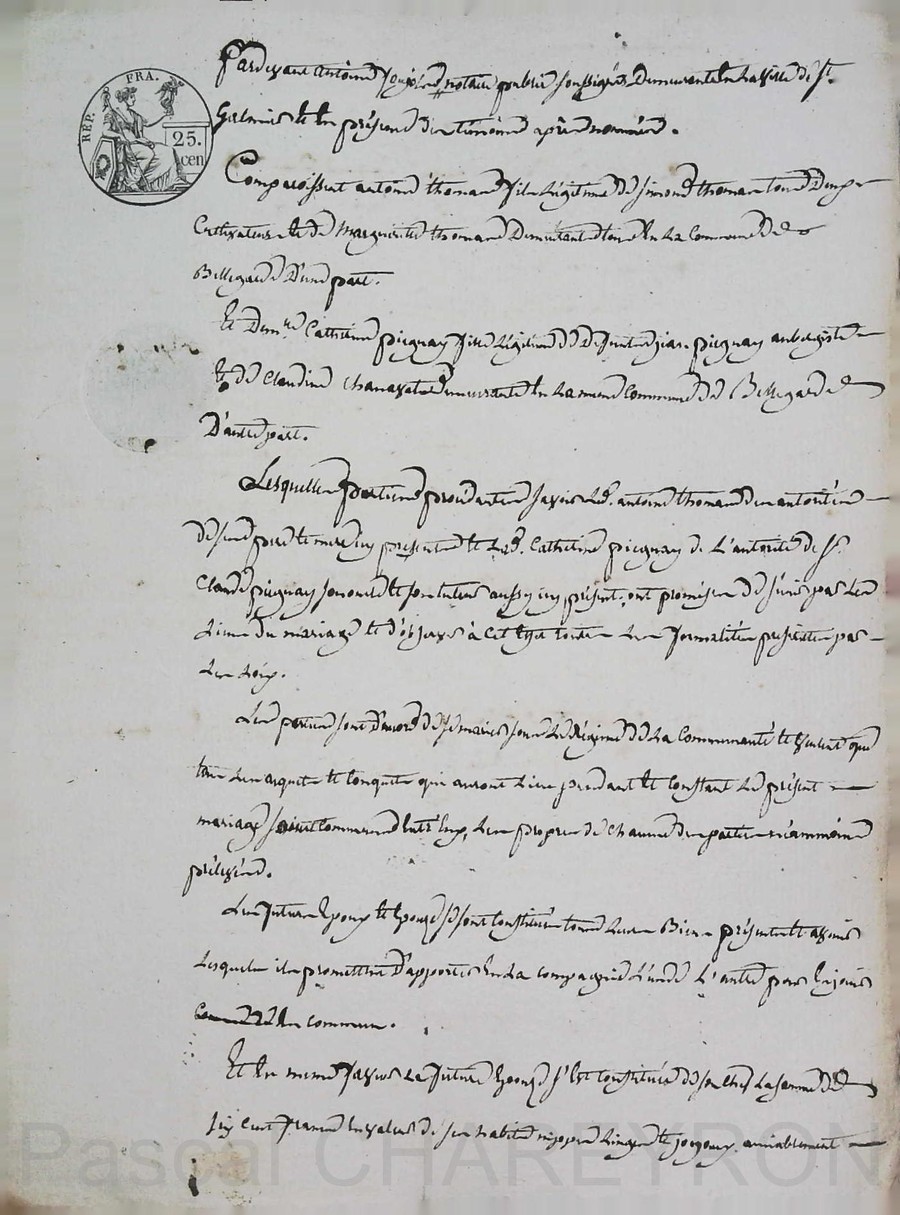 RÉP. FRA.
25.
cen
Pardevant antoine notaire public soussigné Demeurant En La ville de St.
Galmier Et En présence des témoins après nommés.
Comparoissent antoine thomas fils Légitime de simond thomas
Cultivateur et de Marguerite thomas Demeurant En La Commune de
Bellegarde D'une part.
Et Demlle Catherine picgnay fille Légitime de Defunt picgnay aubergiste
Et de Claudine Demeurante En La meme Commune de Bellegarde
D'autre part.
Lesquelles parties procédantes savoir Led. antoine thomas de autorité
de ses pere Et mere icy présents Et Lad. Catherine picgnay de L'autorité de Sr.
Claude picgnay son oncle Et son tuteur aussy icy présent, ont promis de s'unir par Les
Liens du mariage Et d'observer à Cet Egard toutes Les formalités prescrites par
Les Loix.
Les parties sont D'accord de se marier sous Le Régime de La Communauté Et Veulent que
tous Les acquets Et Conquets qui auront Lieu pendant Et Constant Le présent
mariage soient Communs Entr'Eux, Les propres de Chacune des parties néammoins
prélevés.
Les futurs Epoux Et Epouse se sont Constitués tous Leurs Biens présents Et avenir
Lesquels ils promettent D'apporter En La compagnie L'un de L'autre pour En jouir
En commun.
Et En meme faveur La future Epouse s'Est Constituée de son Chef La somme de
six Cent francs En valeur de ses habits Linge Et joyaux amiablement
Pascal CHAREYRON